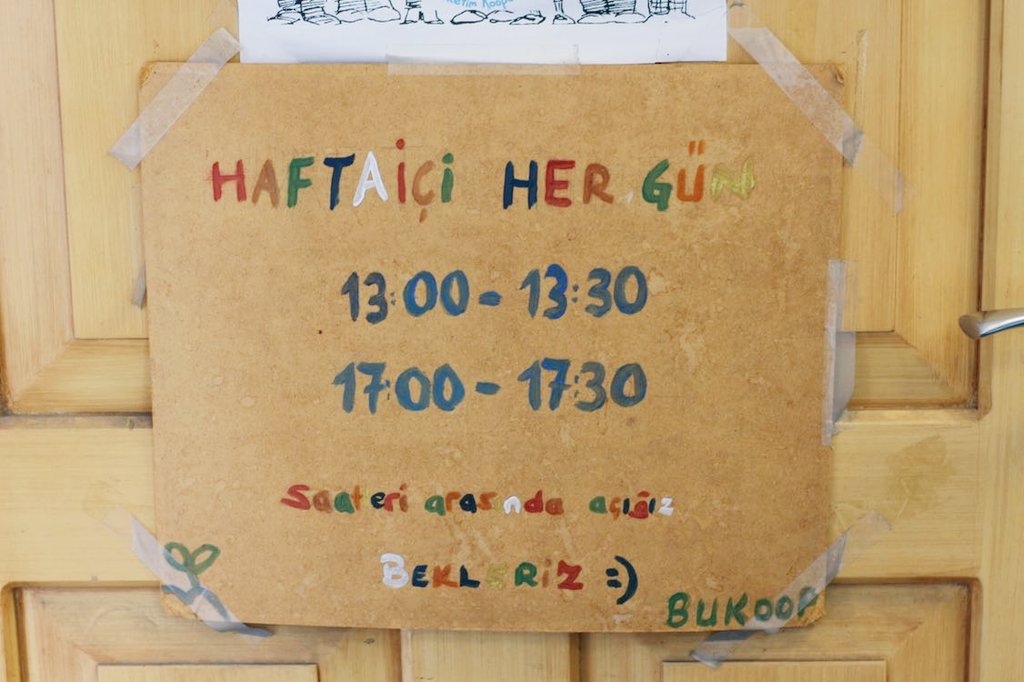 HAFTAİÇİ HER GÜN
13:00 - 13:30
17:00 - 17:30
Saatleri arasında açığız
BEKLERİZ :)
BUKOOP